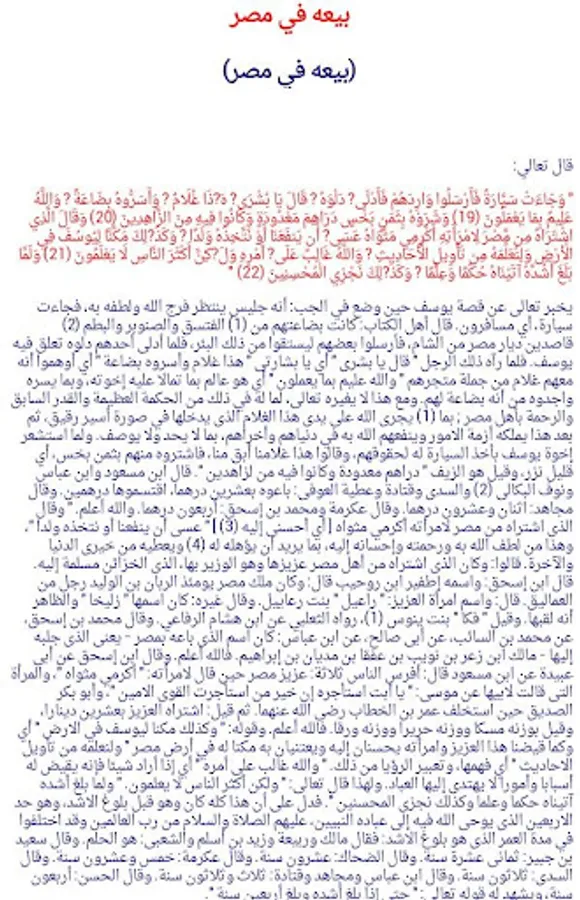 بيعه في مصر
(بيعه في مصر)
قال تعالي:
" وَجَاءَتْ سَيَّارَةٌ فَأَرْسَلُوا وَارِدَهُمْ فَأَدْلَى? دَلْوَهُ ? قَالَ يَا بُشْرَى? هَ?ذَا غُلَامٌ ? وَأَسَرُّوهُ بِضَاعَةً ? وَاللَّهُ
عَلِيمٌ بِمَا يَعْمَلُونَ (19) وَشَرَوْهُ بِثَمَنٍ بَخْسٍ دَرَاهِمَ مَعْدُودَةٍ وَكَانُوا فِيهِ مِنَ الزَّاهِدِينَ (20) وَقَالَ الَّذِي
اشْتَرَاهُ مِن مِّصْرَ لِامْرَأَتِهِ أَكْرِمِي مَثْوَاهُ عَسَى? أَن يَنفَعَنَا أَوْ نَتَّخِذَهُ وَلَدًا ? وَكَذَ?لِكَ مَكَّنَّا لِيُوسُفَ فِي
الْأَرْضِ وَلِنُعَلِّمَهُ مِن تَأْوِيلِ الْأَحَادِيثِ ? وَاللَّهُ غَالِبٌ عَلَى? أَمْرِهِ وَلَ?كِنَّ أَكْثَرَ النَّاسِ لَا يَعْلَمُونَ (21) وَلَمَّا
بَلَغَ أَشُدَّهُ آتَيْنَاهُ حُكْمًا وَعِلْمًا ? وَكَذَ?لِكَ نَجْزِي الْمُحْسِنِينَ (22) "
يخبر تعالى عن قصة يوسف حين وضع في الجب: أنه جليس ينتظر فرج الله ولطفه به، فجاءت
سيارة، أي مسافرون. قال أهل الكتاب: كانت بضاعتهم من (1) الفتسق والصنوبر والبطم (2)
قاصدين ديار مصر من الشام، فأرسلوا بعضهم ليستقوا من ذلك البئر، فلما أدلى أحدهم دلوه تعلق فيه
يوسف. فلما رآه ذلك الرجل " قال يا بشرى " أي يا بشارتى " هذا غلام وأسروه بضاعة " أي أوهموا أنه
معهم غلام من جملة متجرهم " والله عليم بما يعملون " أي هو عالم بما تمالا عليه إخوته، وبما يسره
واجدوه من أنه بضاعة لهم. ومع هذا لا يغيره تعالى، لما له في ذلك من الحكمة العظيمة والقدر السابق
والرحمة بأهل مصر ; بما (1) يجرى الله على يدى هذا الغلام الذى يدخلها في صورة أسير رقيق، ثم
بعد هذا يملكه أزمة الامور وينفعهم الله به في دنياهم وأخراهم، بما لا يحد ولا يوصف. ولما استشعر
إخوة يوسف بأخذ السيارة له لحقوهم، وقالوا هذا غلامنا أبق منا، فاشتروه منهم بثمن بخس، أي
قليل نزر، وقيل هو الزيف " دراهم معدودة وكانوا فيه من لزاهدين ". قال ابن مسعود وابن عباس
ونوف البكالى (2) والسدى وقتادة وعطية العوفى: باعوه بعشرين درهما، اقتسموها درهمين. وقال
مجاهد: اثنان وعشرون درهما. وقال عكرمة ومحمد بن إسحق: أربعون درهما. والله أعلم. " وقال
الذى اشتراه من مصر لامرأته أكرمي مثواه [أي أحسني إليه (3) ] " عسى أن ينفعنا أو نتخذه ولدا "،
وهذا من لطف الله به ورحمته وإحسانه إليه، بما يريد أن يؤهله له (4) ويعطيه من خيرى الدنيا
والآخرة. قالوا: وكان الذى اشتراه من أهل مصر عزيزها وهو الوزير بها، الذى الخزائن مسلمة إليه.
قال ابن إسحق: واسمه إطفير ابن روحيب قال: وكان ملك مصر يومئذ الريان بن الوليد رجل من
العماليق. قال: واسم امرأة العزيز: " راعيل " بنت رعابيل. وقال غيره: كان اسمها " زليخا " والظاهر
أنه لقبها. وقيل " فكا " بنت ينوس (1)، رواه الثعلبى عن ابن هشام الرفاعى. وقال محمد بن إسحق،
عن محمد بن السائب، عن أبى صالح، عن ابن عباس: كان اسم الذى باعه بمصر - يعنى الذى جلبه
إليها - مالك ابن زعر بن نويب بن عفقا بن مديان بن إبراهيم. فالله أعلم. وقال ابن إسحق عن أبى
عبيدة عن ابن مسعود قال: أفرس الناس ثلاثة: عزيز مصر حين قال لامرأته: " أكرمي مثواه "، والمرأة
التى قالت لابيها عن موسى: " يا أبت استأجره إن خير من استأجرت القوى الامين "، وأبو بكر
الصديق حين استخلف عمر بن الخطاب رضى الله عنهما. ثم قيل: اشتراه العزيز بعشرين دينارا،
وقيل بوزنه مسكا ووزنه حريرا ووزنه ورقا. فالله أعلم. وقوله: " وكذلك مكنا ليوسف في الارض " أي
وكما قيضنا هذا العزيز وامرأته يحسنان إليه ويعتنيان به مكنا له في أرض مصر " ولنعلمه من تأويل
الاحاديث " أي فهمها، وتعبير الرؤيا من ذلك. " والله غالب على أمره " أي إذا أراد شيئا فإنه يقيض له
أسبابا وأمورا لا يهتدى إليها العباد. ولهذا قال تعالى: " ولكن أكثر الناس لا يعلمون. " ولما بلغ أشده
آتيناه حكما وعلما وكذلك نجزى المحسنين ". فدل على أن هذا كله كان وهو قبل بلوغ الاشد، وهو حد
الاربعين الذى يوحى الله فيه إلى عباده النبيين، عليهم الصلاة والسلام من رب العالمين وقد اختلفوا
في مدة العمر الذى هو بلوغ الاشد: فقال مالك وربيعة وزيد بن أسلم والشعبى: هو الحلم. وقال سعيد
بن جبير: ثمانى عشرة سنة. وقال الضحاك: عشرون سنة. وقال عكرمة: خمس وعشرون سنة. وقال
السدى: ثلاثون سنة. وقال ابن عباس ومجاهد وقتادة: ثلاث وثلاثون سنة. وقال الحسن: أربعون
سنة، ويشهد له قوله تعالى: " حتى إذا بلغ أشده وبلغ أربعين سنة ".